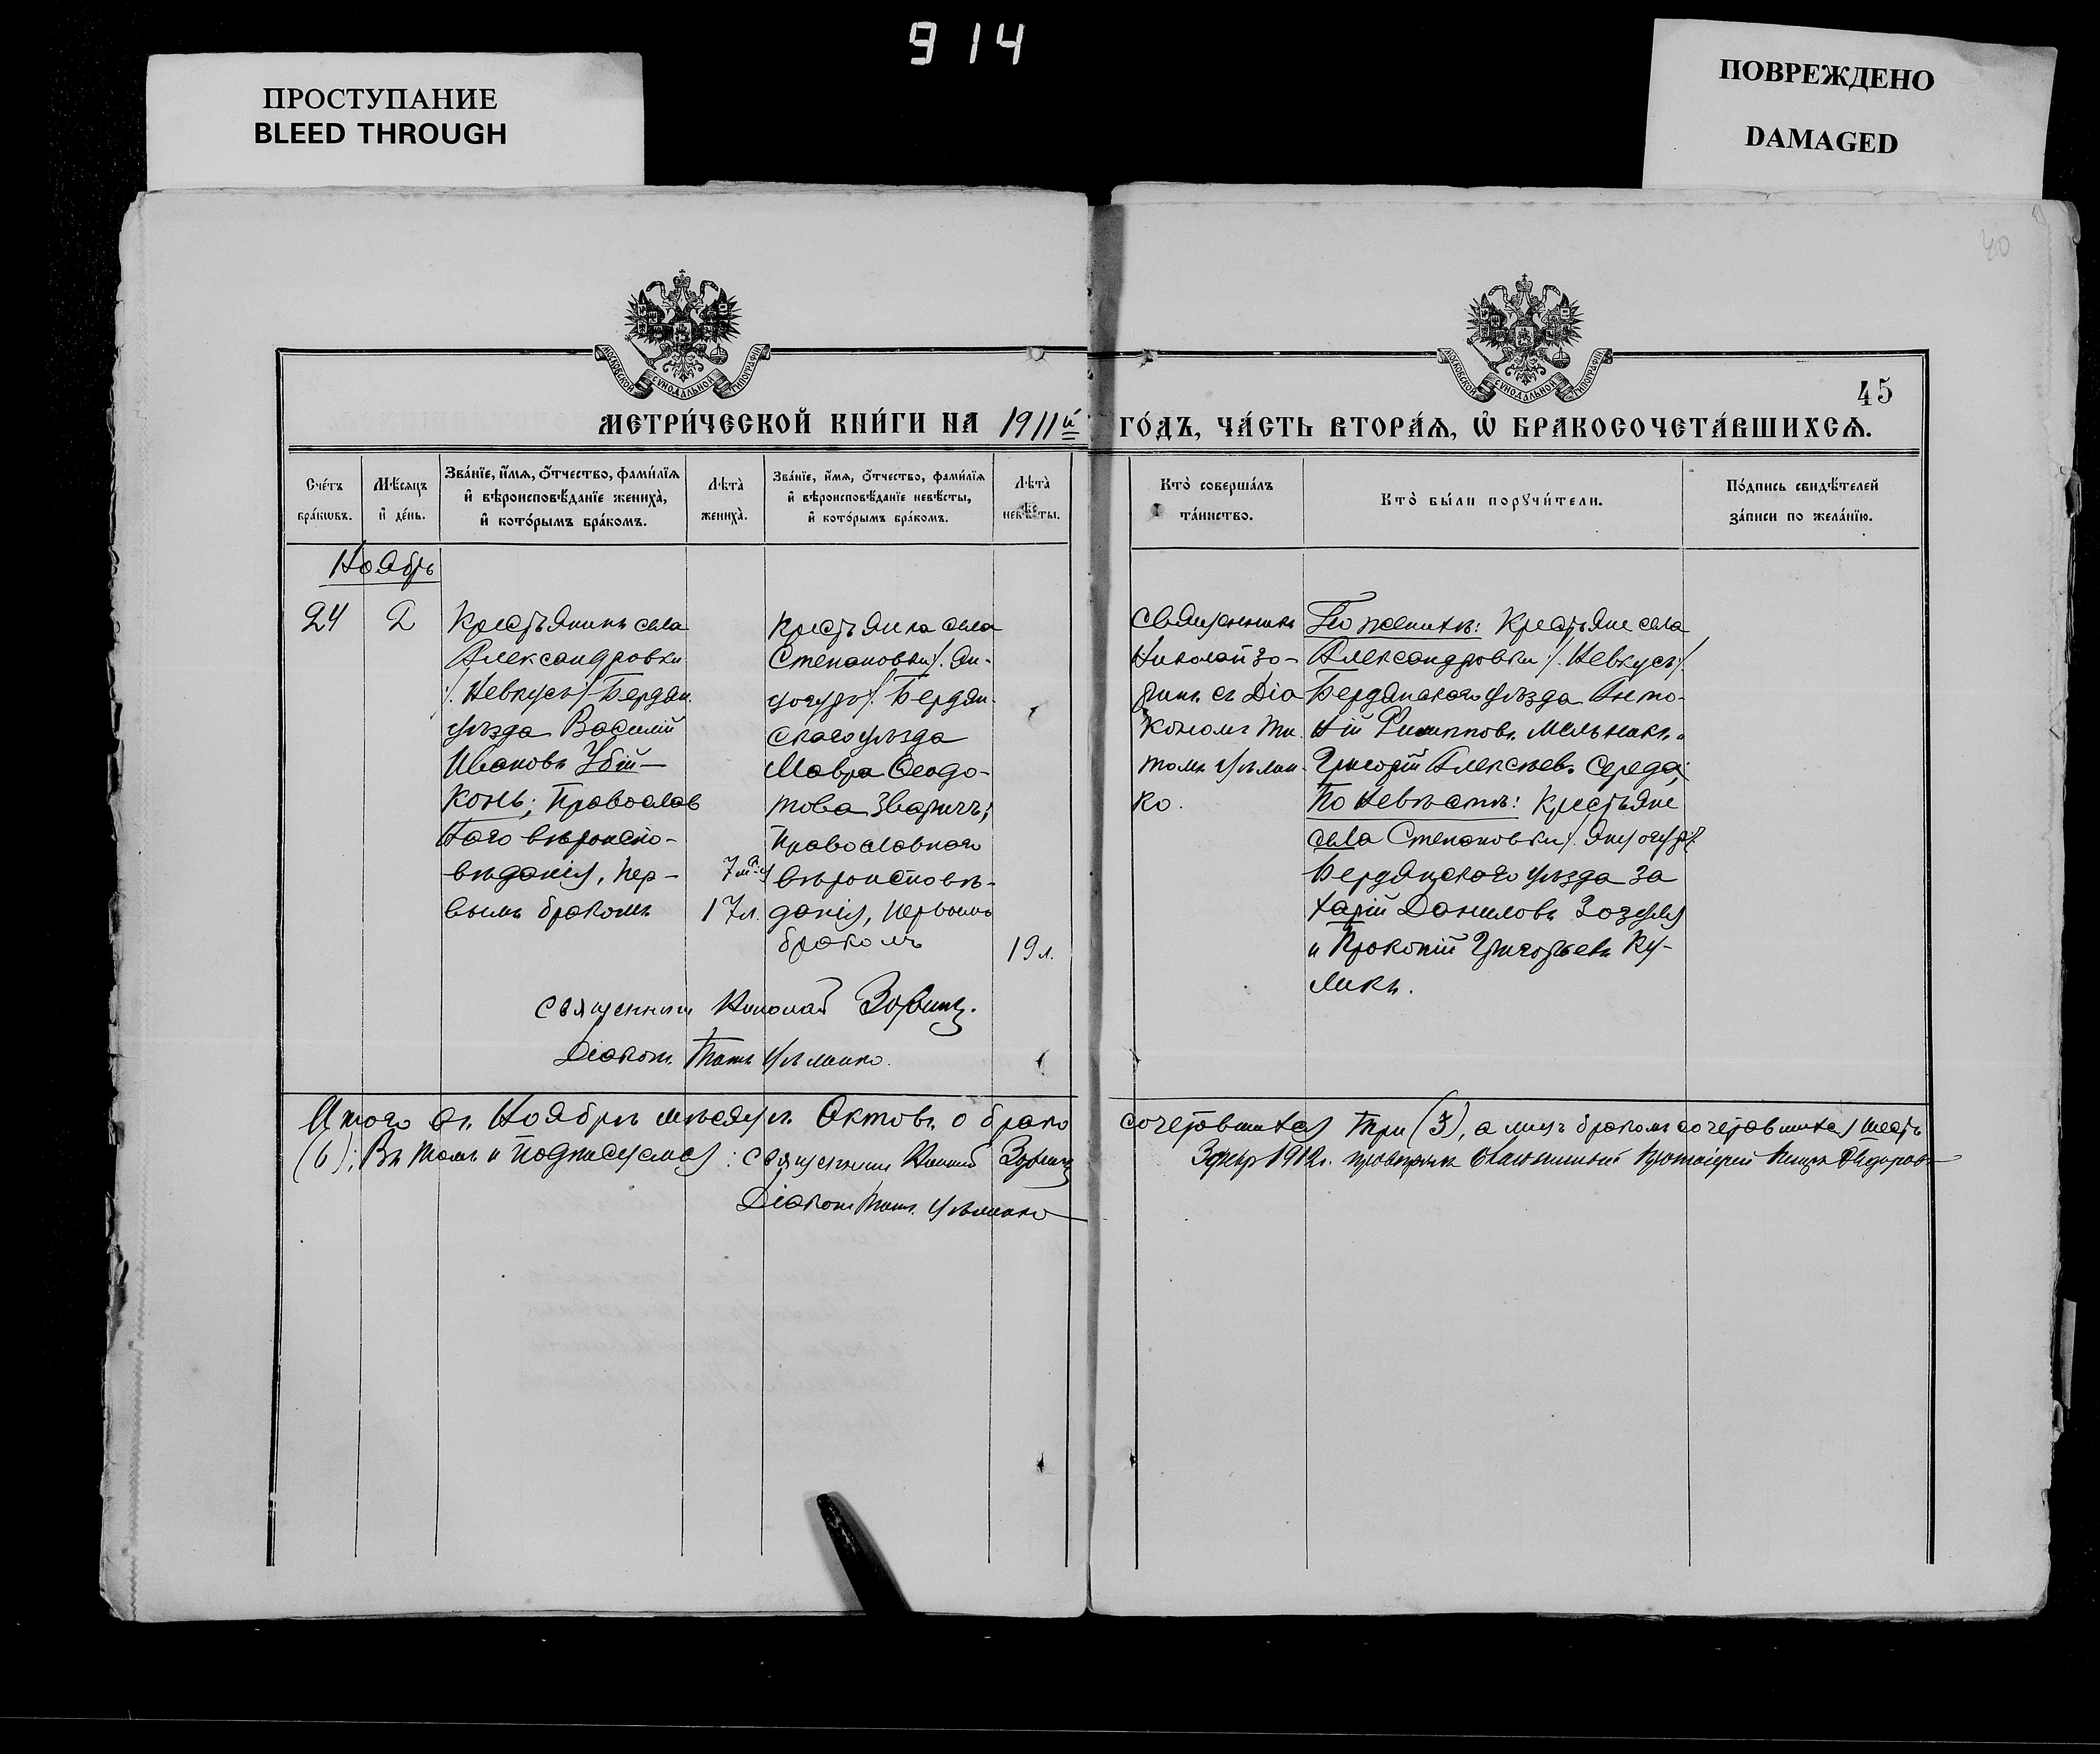 914
ПРОСТУПАНИЕ
BLEED THROUGH
ПОВРЕЖДЕНО
DAMAGED
40
МОСКОВСКОЙ СѴНОДАЛЬНОЙ ТИПОГРАФІИ
МОСКОВСКОЙ СѴНОДАЛЬНОЙ ТИПОГРАФІИ
45
МЕТРИ́ЧЕСКОЙ КНИ́ГИ НА 1911й ГО́ДЪ, ЧА́СТЬ ВТОРА́Ѧ, Ѽ БРАКОСОЧЕТА́ВШИХСѦ.
Сче́тъ
бра́кѡвъ.
Мѣ́сяцъ
и҆ де́нь.
Зва́нїе, и҆́мѧ, ѻ҆́тчество, фами́лїѧ
и҆ вѣроисповѣ́данїе жениха̀,
и҆ кото́рымъ бра́комъ.
Лѣта̀
жениха̀.
Зва́нїе, и҆́мѧ, ѻ҆́тчество, фами́лїѧ
и҆ вѣроисповѣ́данїе невѣ́сты,
и҆ кото́рымъ бра́комъ.
Лѣта̀
невѣ́сты.
Кто̀ соверша́лъ
та́инство.
Кто̀ бы́ли порꙋчи́тели.
По́дпись свидѣ́телей
за́писи по жела́нїю.
Ноябрь
24
2
Крестьянинъ села
Александровки
/. Невкусъ/. Бердян.
уѣзда Василій
Ивановъ Убій-
конь; Православ
наго вѣроиспо-
вѣданія, пер-
вымъ бракомъ
17л.
Крестьянка села
Степановки/. Ян-
Бердян-
скаго уѣзда
Мавра Ѳеодо-
това Зваричъ;
православнаго
вѣроисповѣ-
данія, первымъ
бракомъ
19л.
Священникъ
Николай Зо-
ринъ съ Діа
кономъ Ти
томъ
ко.
По женихѣ: Крестьяне села
Александровки /. Невкусъ/.
Бердянскаго уѣзда Анто-
ній Филипповъ Мельникъ и
Григорій Алексѣевъ Середа;
По невѣстѣ: крестьяне
села Степановки/.
Бердянскаго уѣзда За
харій Даниловъ Зозуля
и Прокопій Григорьевъ Ку-
ликъ.
Священникъ Николай
Діаконъ Титъ
Итого въ Ноябрѣ мѣсяцѣ Актовъ о брако
сочетавшихся три (3), а лицъ бракомъ сочетавшихся шесть
(6); Въ томъ и подписуемся: Священникъ Николай
1912г. Благочинный Протоіерей
Діаконъ Титъ